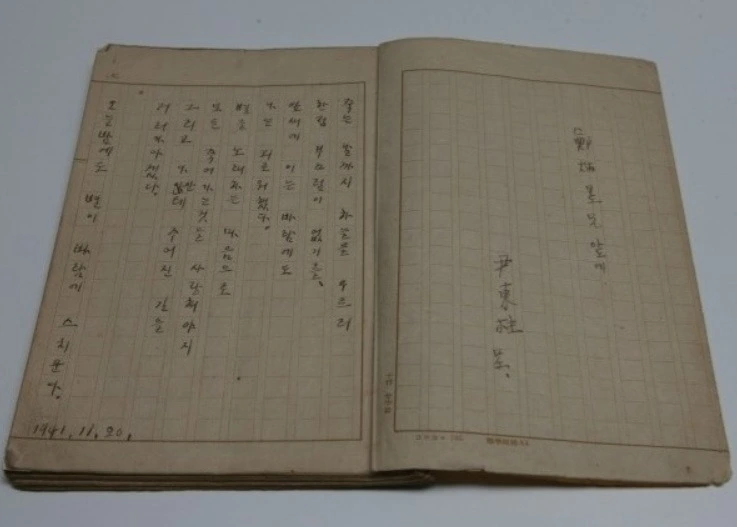 鄭炳昱 兄 앞에
尹東柱 呈.
죽는 날까지 하늘을 우르러
한점 부끄럼이 없기를,
잎새에 이는 바람에도
나는 괴로워했다.
별을 노래하는 마음으로
모든 죽어가는것을 사랑해야지
그리고 나안테 주어진 길을
거러가야겠다.
오늘밤에도 별이 바람에 스치운다.
1941. 11. 20.